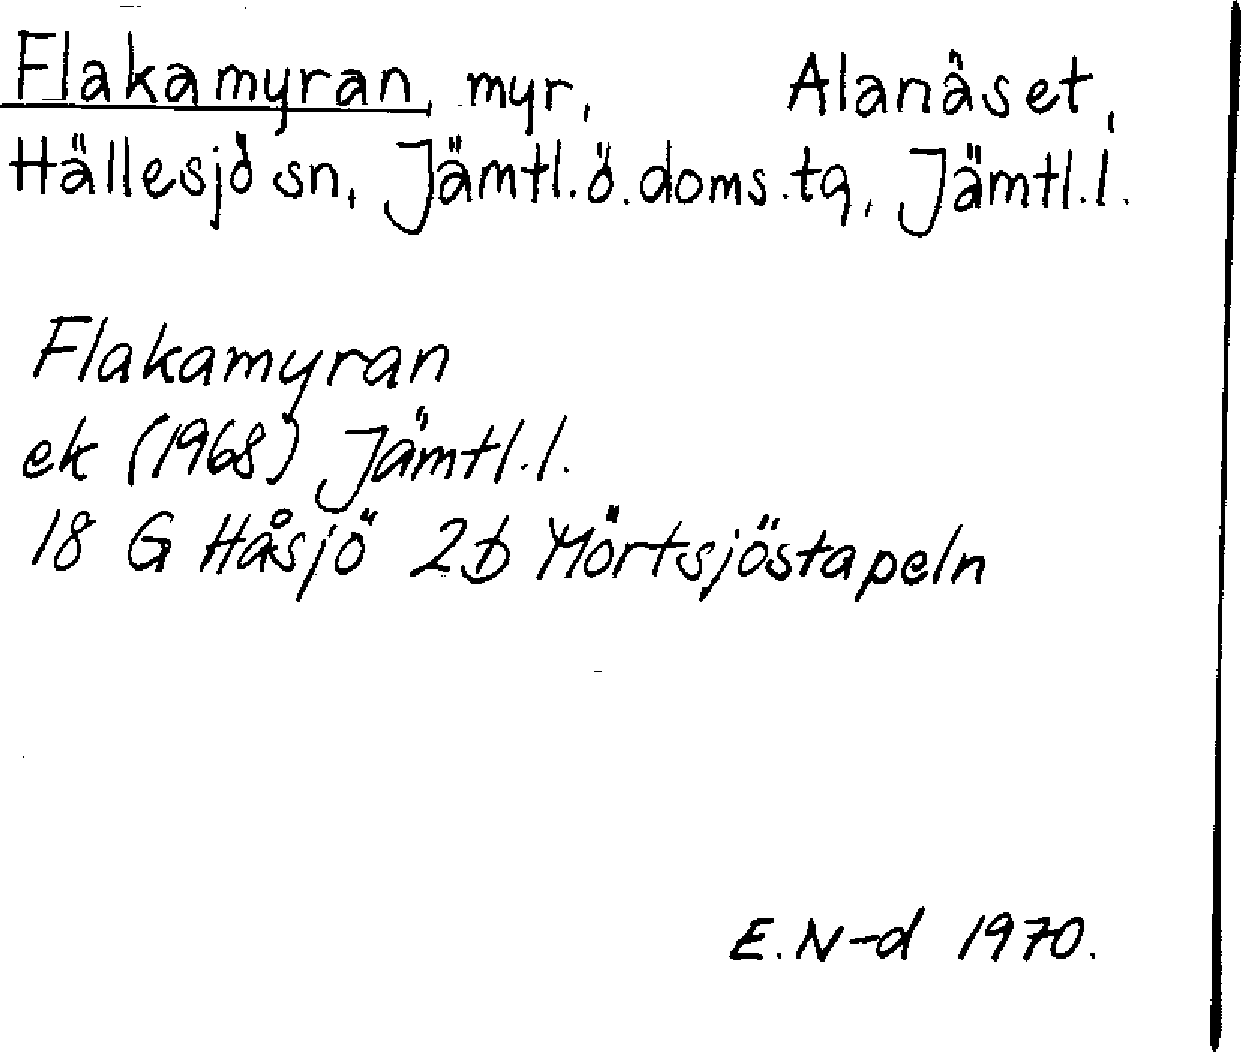 Flakamyran, myr, Alanäset,
Hällesjö sn, Jämtl. ö. doms. tg, Jämtl. l.
Flakamyran
ek (1968) Jämtl. l.
18 G Håsjö 2b Mörtsjöstapeln
E. N-d 1970.